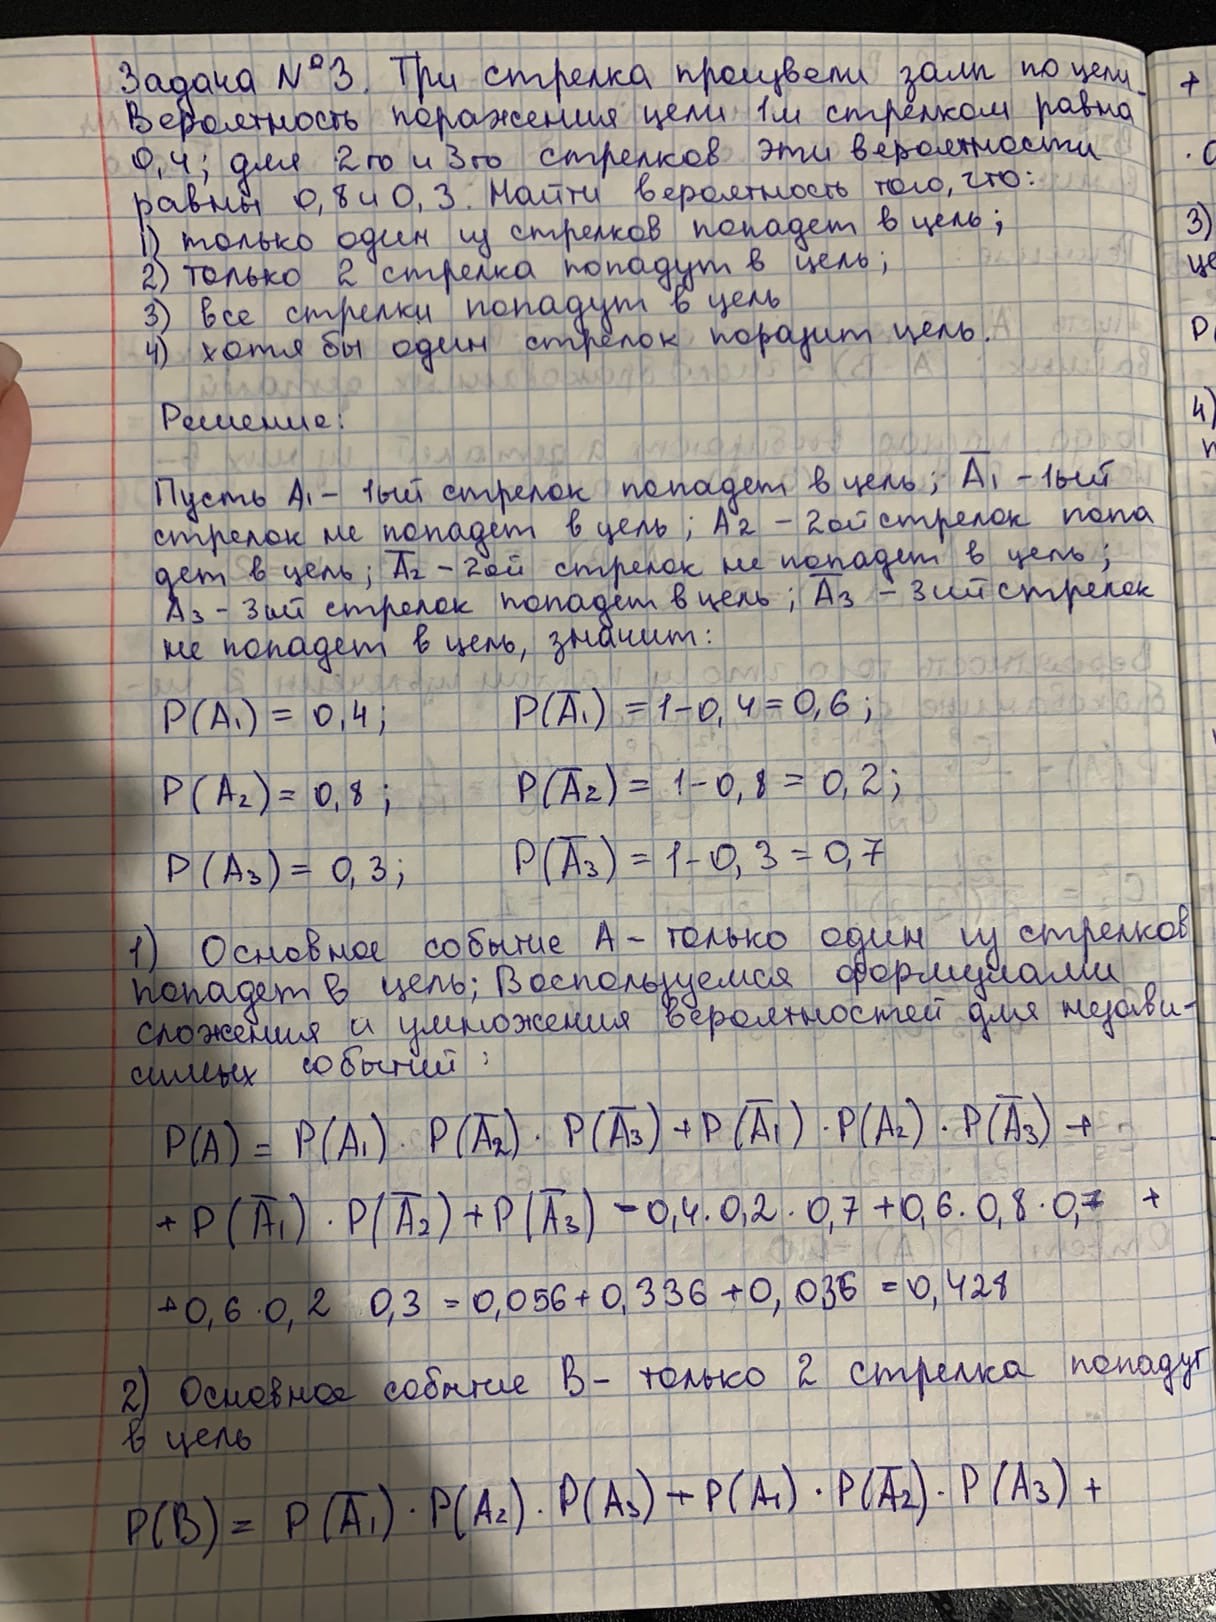 Задача №3. Три стрелка произвели залп по цели.
Вероятность поражения цели 1м стрелком равна
0,4; для 2го и 3го стрелков эти вероятности
равны 0,8 и 0,3. Найти вероятность того, что:
1) только один из стрелков попадет в цель;
2) только 2 стрелка попадут в цель;
3) все стрелки попадут в цель
4) хотя бы один стрелок поразит цель.
Решение:
Пусть A₁ – 1ый стрелок попадет в цель; A̅₁ – 1ый
стрелок не попадет в цель; A₂ – 2ой стрелок попа
дет в цель; A̅₂ – 2ой стрелок не попадет в цель;
A₃ – 3ий стрелок попадет в цель; A̅₃ – 3ий стрелок
не попадет в цель, значит:
P(A₁) = 0,4; P(A̅₁) = 1-0,4=0,6;
P(A₂) = 0,8; P(A̅₂) = 1-0,8 = 0,2;
P(A₃) = 0,3; P(A̅₃) = 1-0,3 = 0,7
1) Основное событие A – только один из стрелков
попадет в цель; Воспользуемся формулами
сложения и умножения вероятностей для незави-
симых событий:
P(A) = P(A₁) · P(A̅₂) · P(A̅₃) + P(A̅₁) · P(A₂) · P(A̅₃) +
+ P(A̅₁) · P(A̅₂) + P(A̅₃) = 0,4 · 0,2 · 0,7 + 0,6 · 0,8 · 0,7 +
+ 0,6 · 0,2 0,3 = 0,056 + 0,336 + 0,036 = 0,428
2) Основное событие B – только 2 стрелка попадут
в цель
P(B) = P(A̅₁) · P(A₂) · P(A₃) + P(A₁) · P(A̅₂) · P(A₃) +
+
3)
це
4)